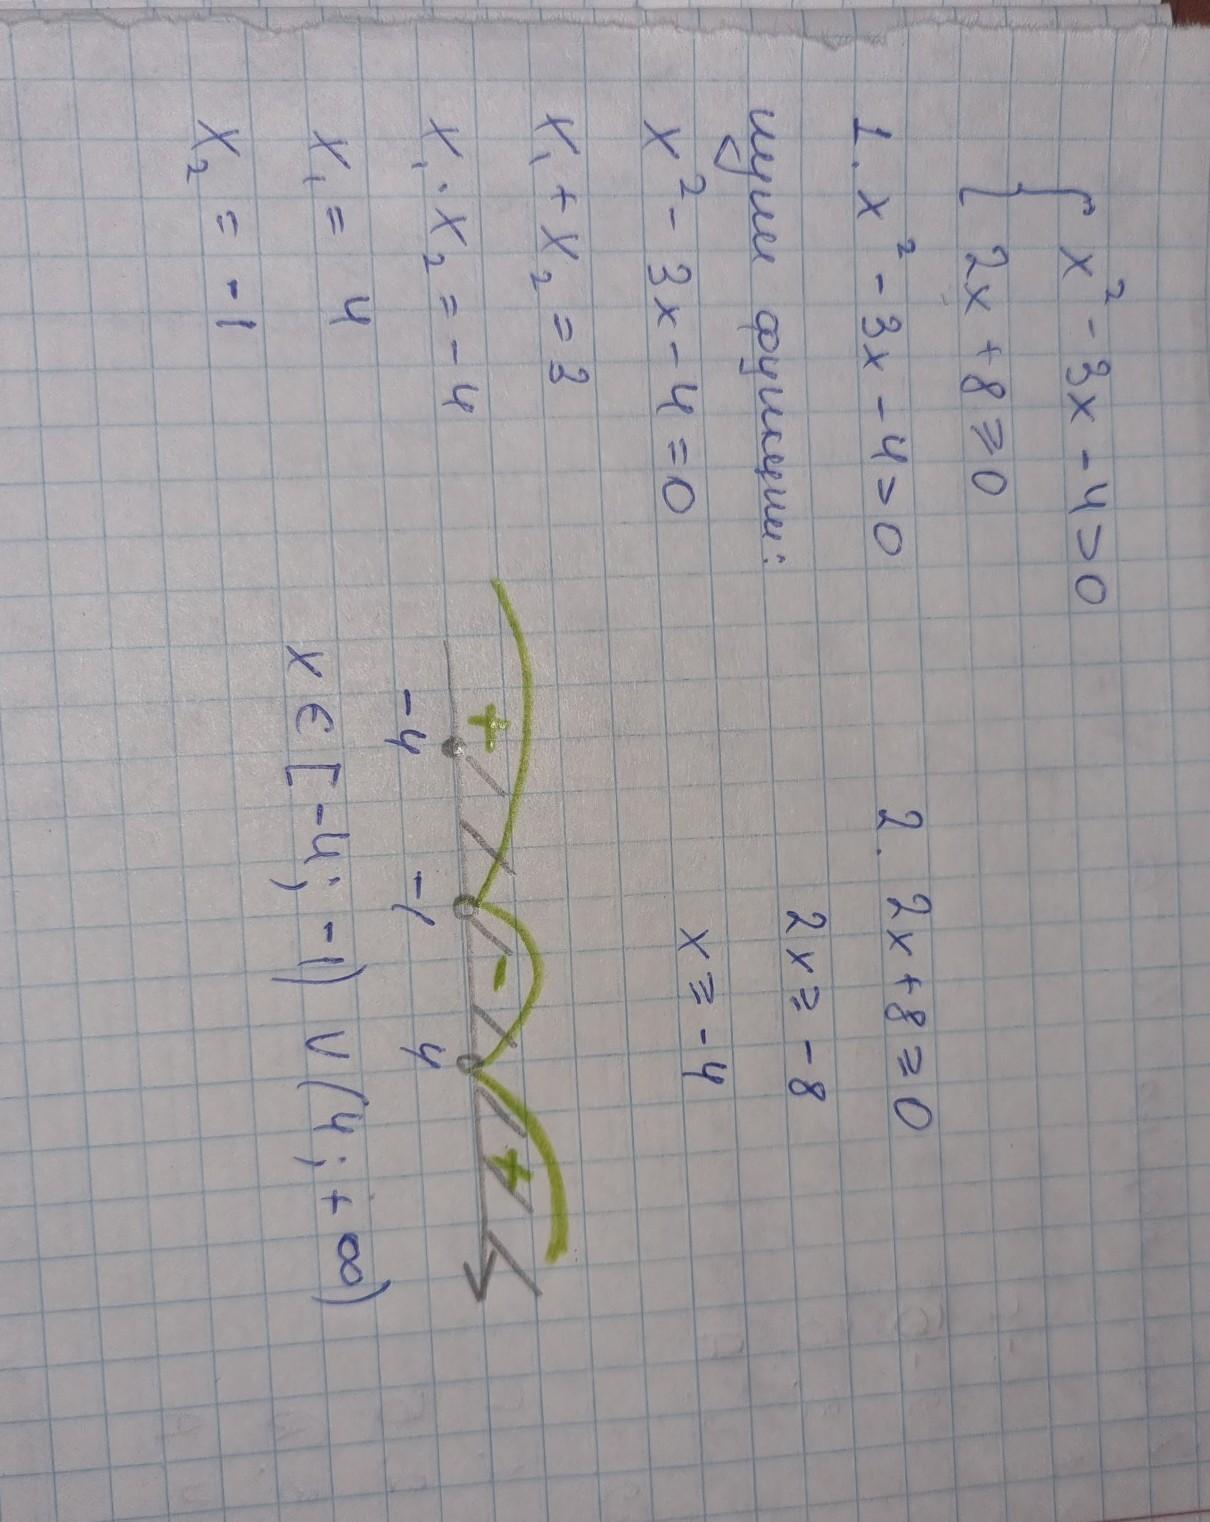 { x² - 3x - 4 > 0
2x + 8 ≥ 0
1. x² - 3x - 4 > 0
нули функции:
x² - 3x - 4 = 0
x₁ + x₂ = 3
x₁ · x₂ = -4
x₁ = 4
x₂ = -1
2. 2x + 8 ≥ 0
2x ≥ -8
x ≥ -4
+ - +
-4 -1 4
x ∈ [-4; -1) ∪ (4; +∞)